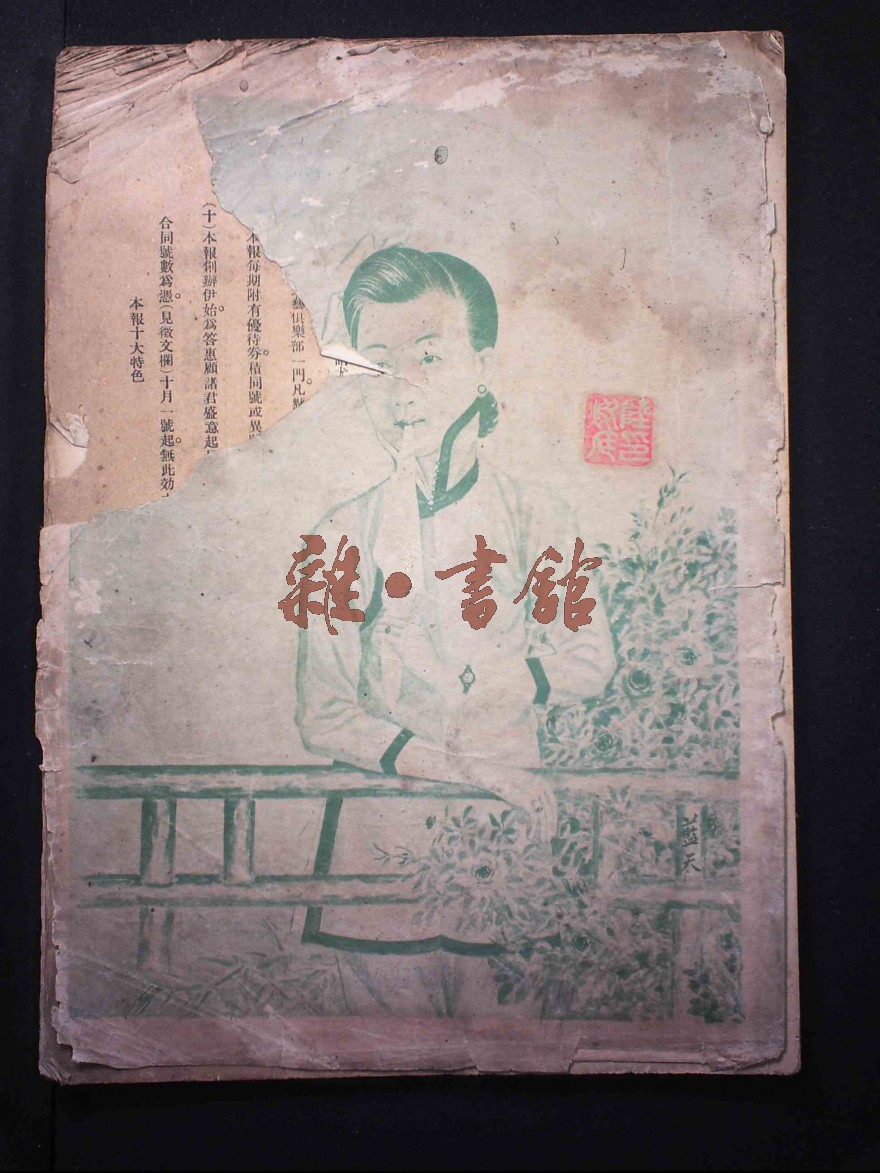 藝俱樂部一門。凡
本報每期附有優待券。積同號或異
(十)本報創辦伊始。爲答惠顧諸君盛意起
合同號數爲憑。(見徵文欄)十月一號起。無此効
本報十大特色
雜•書舘
藍天